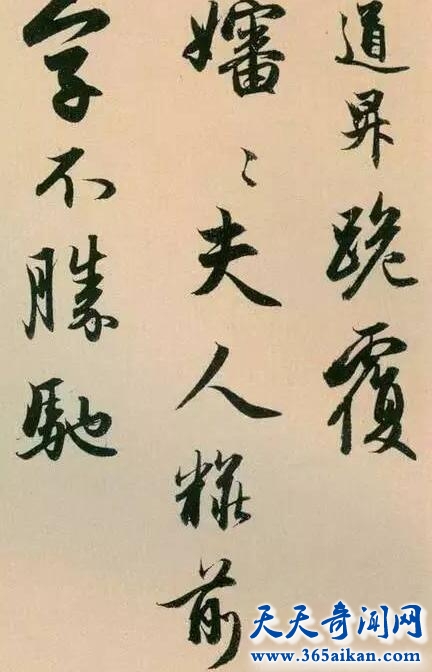 道昇跪覆
嬸〻夫人粧前
不勝馳
天天奇闻网
www.365aikan.com